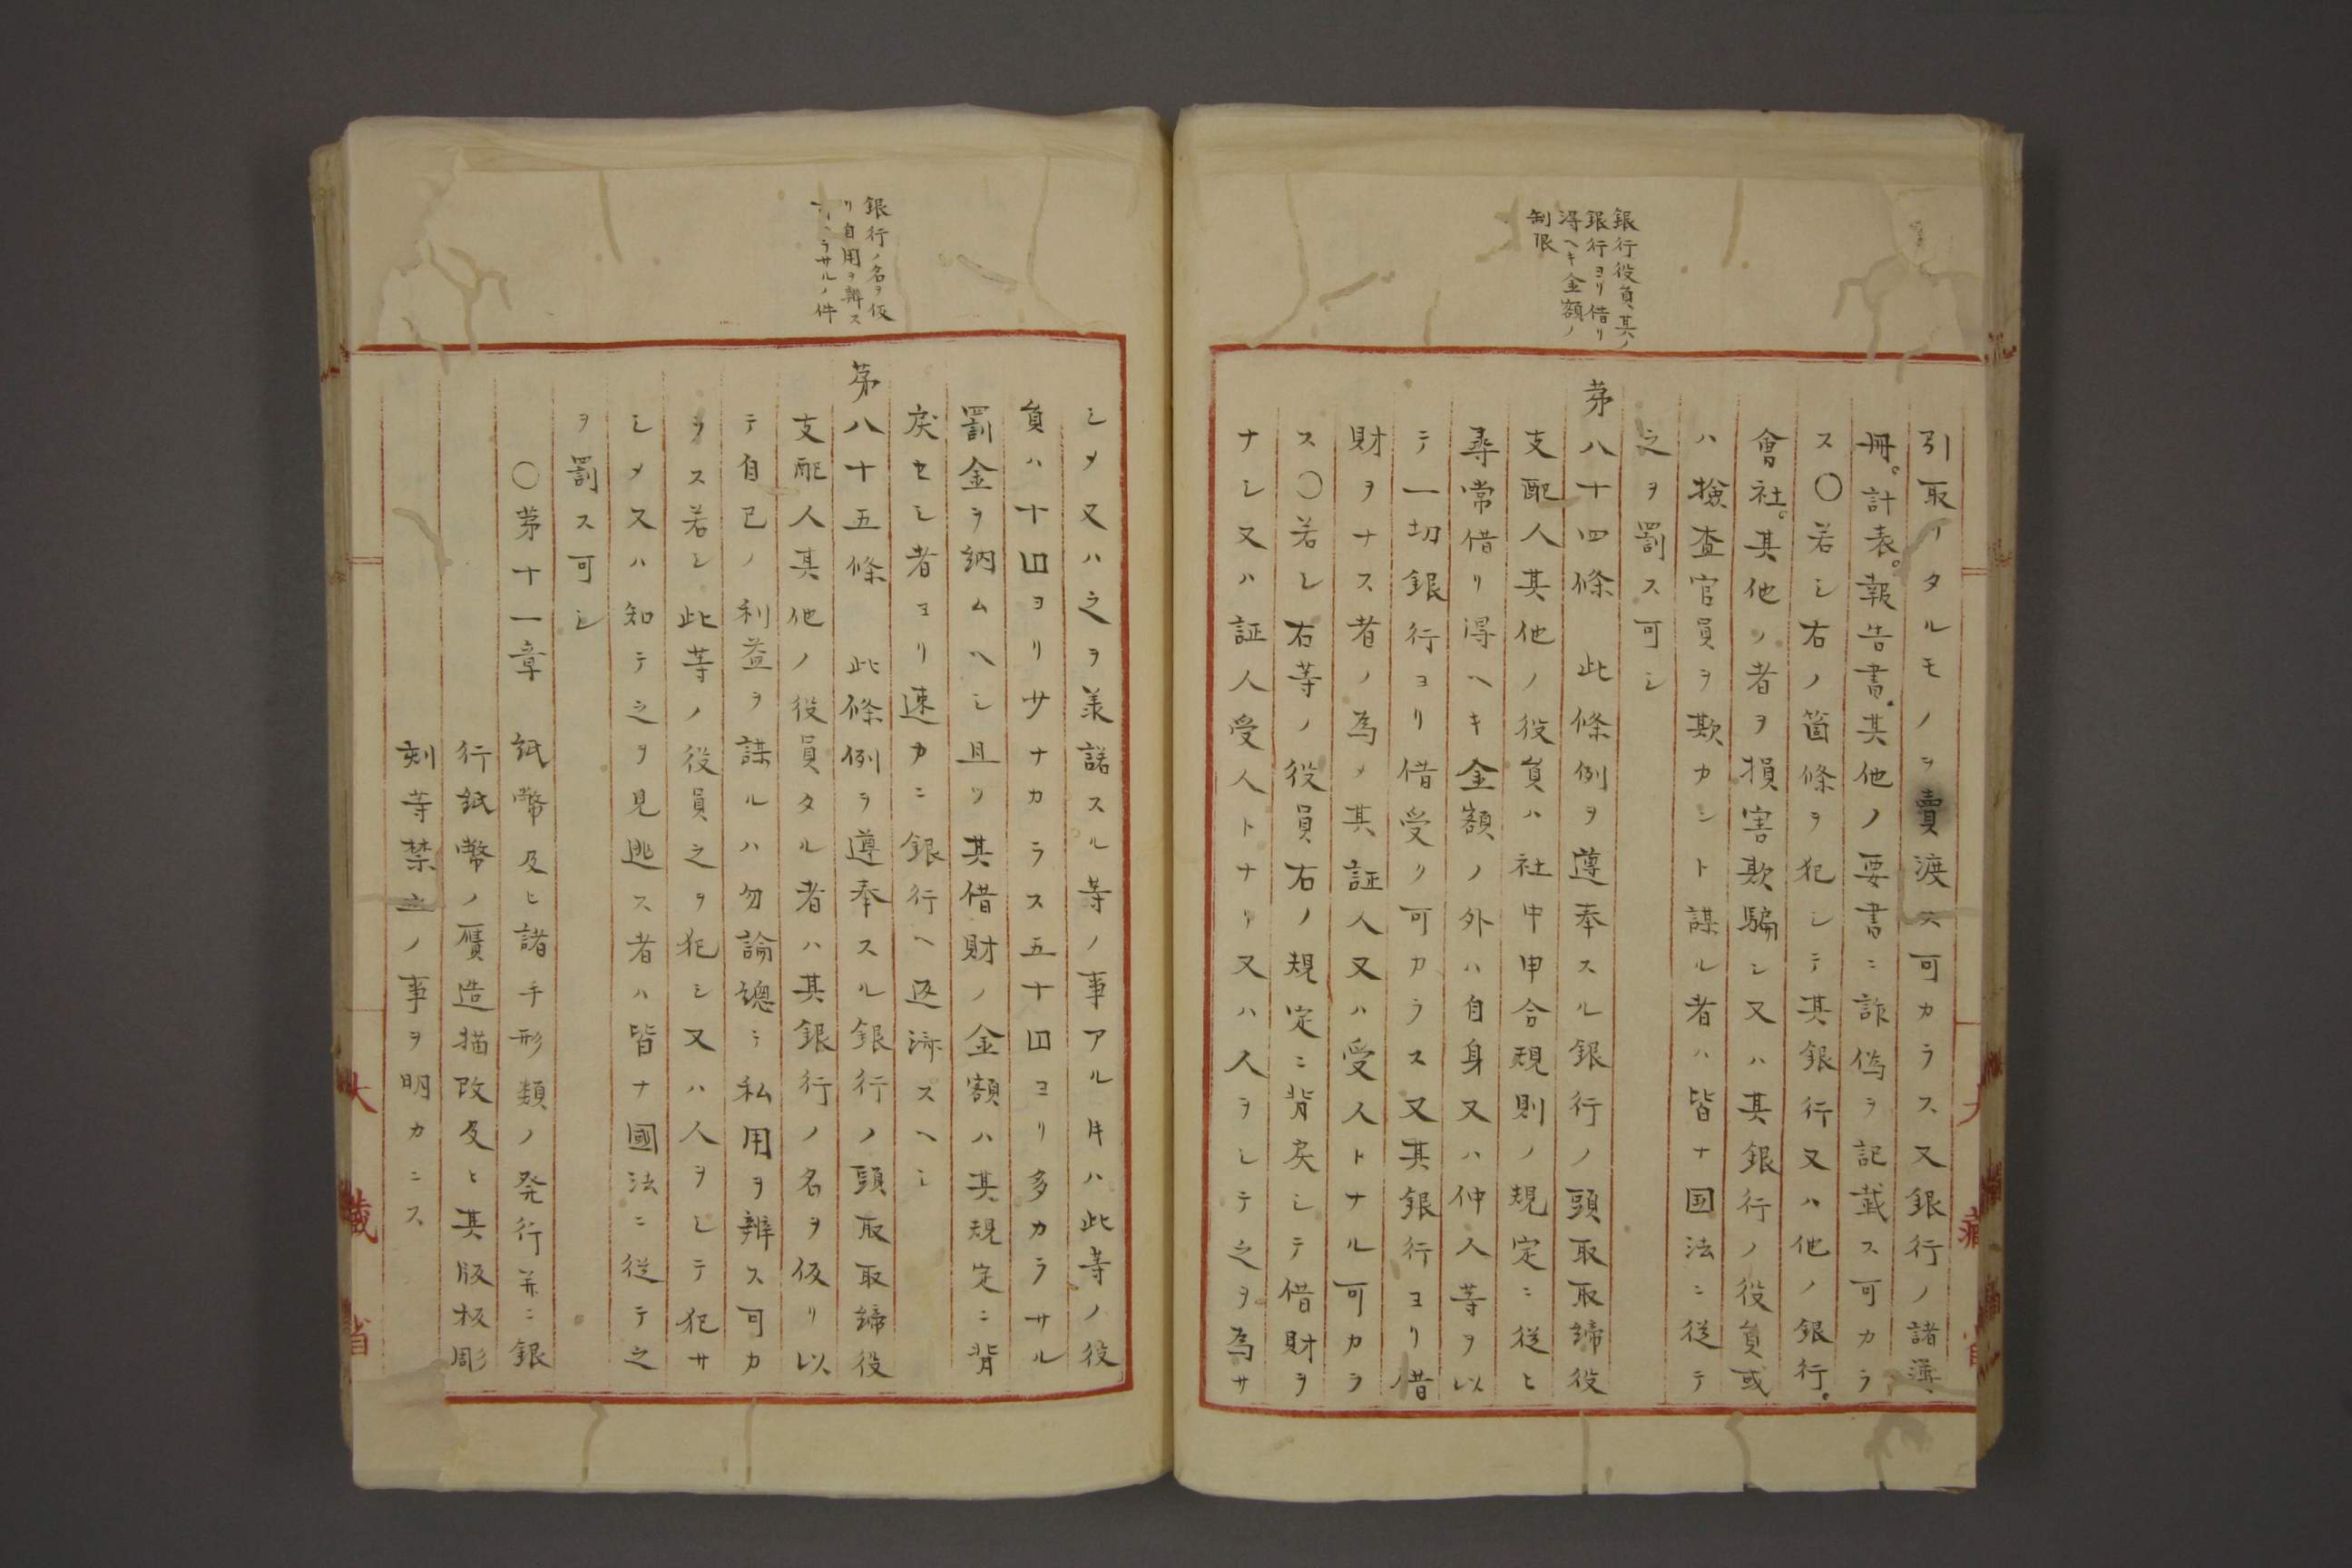 銀行役負其ノ
銀行ヨリ借リ
得ヘキ金額ノ
制限
引取リタルモノヲ賣渡ス可カラス又銀行ノ諸簿
冊。計表。報告書。其他ノ要書ニ詐偽ヲ記載ス可カラ
ス〇若シ右ノ箇條ヲ犯シテ其銀行又ハ他ノ銀行。
會社。其他ノ者ヲ損害欺騙シ又ハ其銀行ノ役負或
ハ撿査官員ヲ欺カント謀ル者ハ皆ナ国法ニ従テ
之ヲ罰ス可シ
第八十四條 此條例ヲ遵奉スル銀行ノ頭取取締役
支配人其他ノ役負ハ社中申合規則ノ規定ニ従ヒ
尋常借リ得ヘキ金額ノ外ハ自身又ハ仲人等ヲ以
テ一切銀行ヨリ借受ク可カラス又其銀行ヨリ借
財ヲナス者ノ為メ其証人又ハ受人トナル可カラ
ス〇若シ右等ノ役員右ノ規定ニ背戻シテ借財ヲ
ナシ又ハ証人受人トナリ又ハ人ヲシテ之ヲ為サ
銀行ノ名ヲ仮
リ自用ヲ辨ス
ヘカラサルノ件
シメ又ハ之ヲ羕諾スル等ノ事アル片ハ此等ノ役
負ハ十囙ヨリサナカラス五十囙ヨリ多カラサル
罰金ヲ納ムヘシ且ツ其借財ノ金額ハ其規定ニ背
戻セシ者ヨリ速カニ銀行ヘ返済スヘシ
第八十五條 此條例ヲ遵奉スル銀行ノ頭取取締役
支配人其他ノ役員タル者ハ其銀行ノ名ヲ仮リ以
テ自己ノ利益ヲ謀ルハ勿論總テ私用ヲ辨ス可カ
ラス若シ此等ノ役員之ヲ犯シ又ハ人ヲシテ犯サ
シメ又ハ知テ之ヲ見逃ス者ハ皆ナ國法ニ従テ之
ヲ罰ス可シ
〇第十一章 紙幣及ヒ諸手形類ノ発行并ニ銀
行紙幣ノ贋造描改及ヒ其版板彫
刻等禁止ノ事ヲ明カニス
大藏省